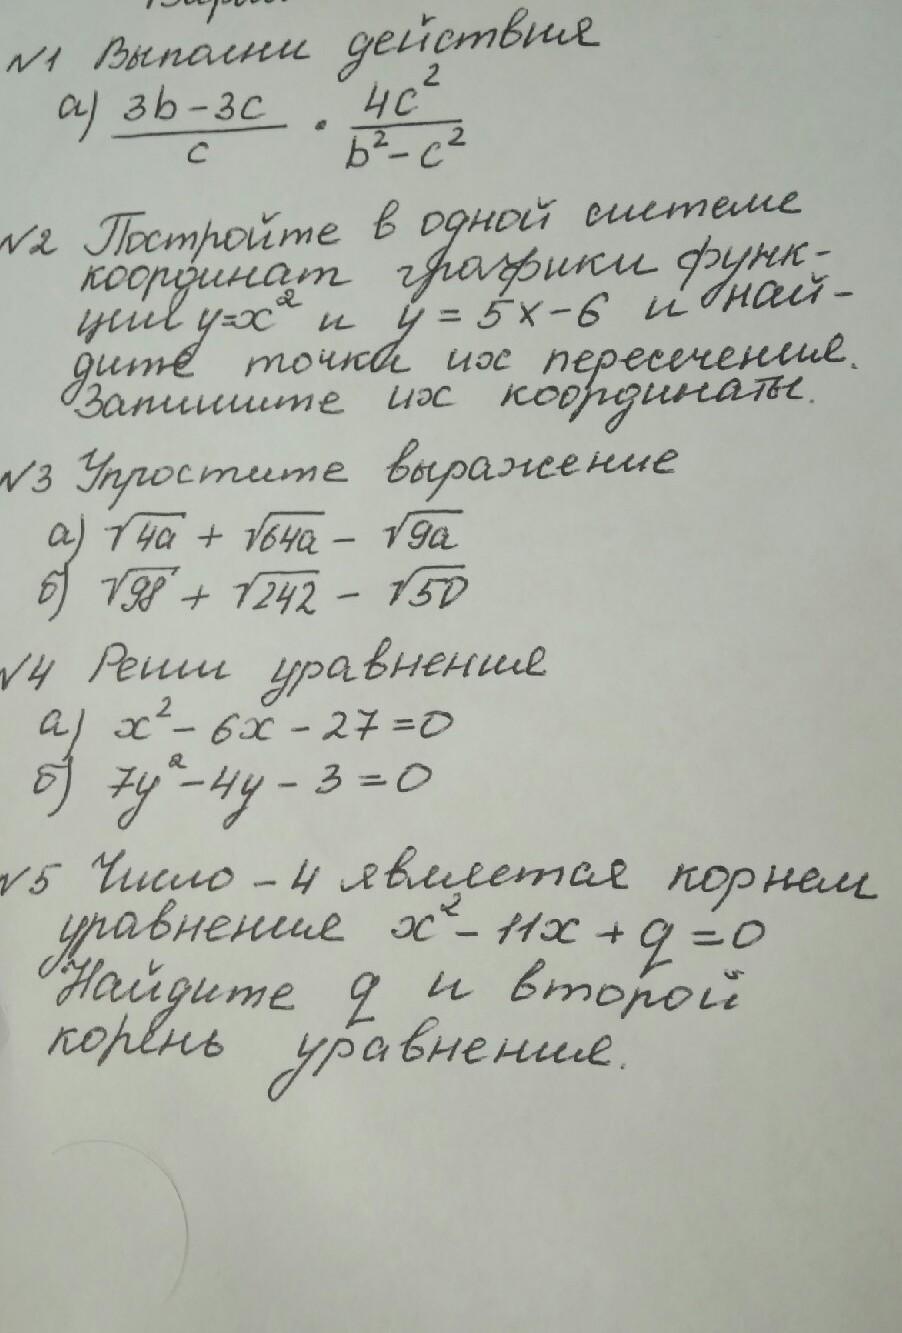 №1 Выполни действия
а) (3b-3c)/c · 4c²/(b²-c²)
№2 Постройте в одной системе
координат графики функ-
ции y=x² и y=5x-6 и най-
дите точки их пересечения.
Запишите их координаты.
№3 Упростите выражение
а) √4a + √64a - √9a
б) √98 + √242 - √50
№4 Реши уравнения
а) x² - 6x - 27 = 0
б) 7y² - 4y - 3 = 0
№5 Число -4 является корнем
уравнения x² - 11x + q = 0
Найдите q и второй
корень уравнения.